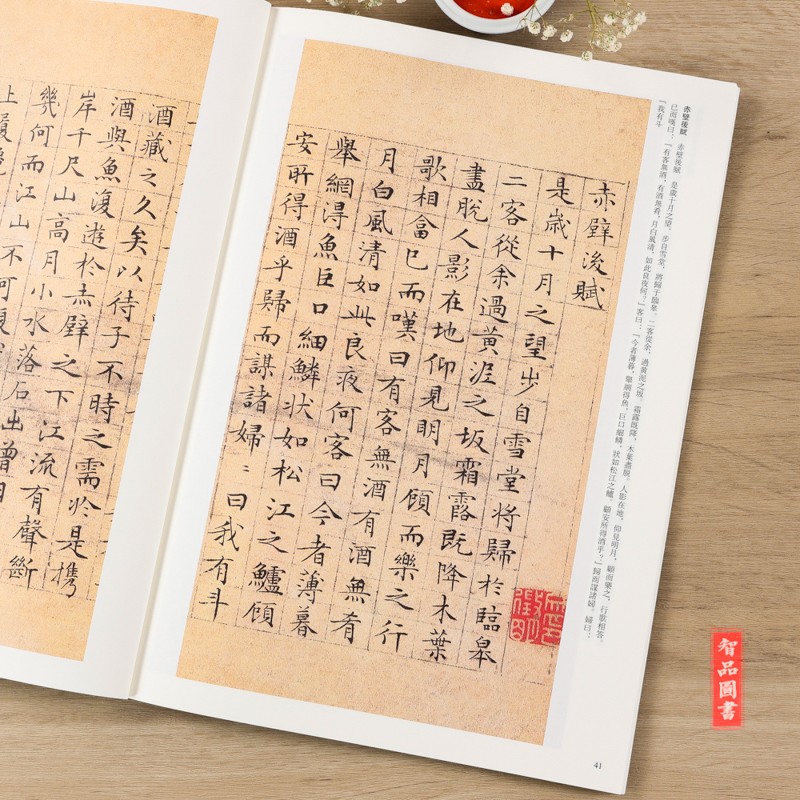 赤壁後賦
赤壁後賦 是歲十月之望,步自雪堂,將歸于臨皋。二客從余,過黃泥之坂。霜露既降,木葉盡脫。人影在地,仰見明月,顧而樂之,行歌相答。
已而嘆曰:「有客無酒,有酒無肴,月白風清,如此良夜何?」客曰:「今者薄暮,舉網得魚,巨口細鱗,狀如松江之鱸。顧安所得酒乎?」歸而謀諸婦。婦曰:
「我有斗
赤壁後賦
是歲十月之望步自雪堂將歸於臨皋
二客從余過黃泥之坂霜露既降木葉
盡脫人影在地仰見明月顧而樂之行
歌相畣已而嘆曰有客無酒有酒無肴
月白風清如此良夜何客曰今者薄暮
舉網得魚巨口細鱗狀如松江之鱸顧
安所得酒乎歸而謀諸婦〻曰我有斗
41
酒藏之久矣以待子不時之需於是攜
酒與魚復遊於赤壁之下江流有聲斷
岸千尺山高月小水落石出曾日
幾何而江山不可復
智品圖書